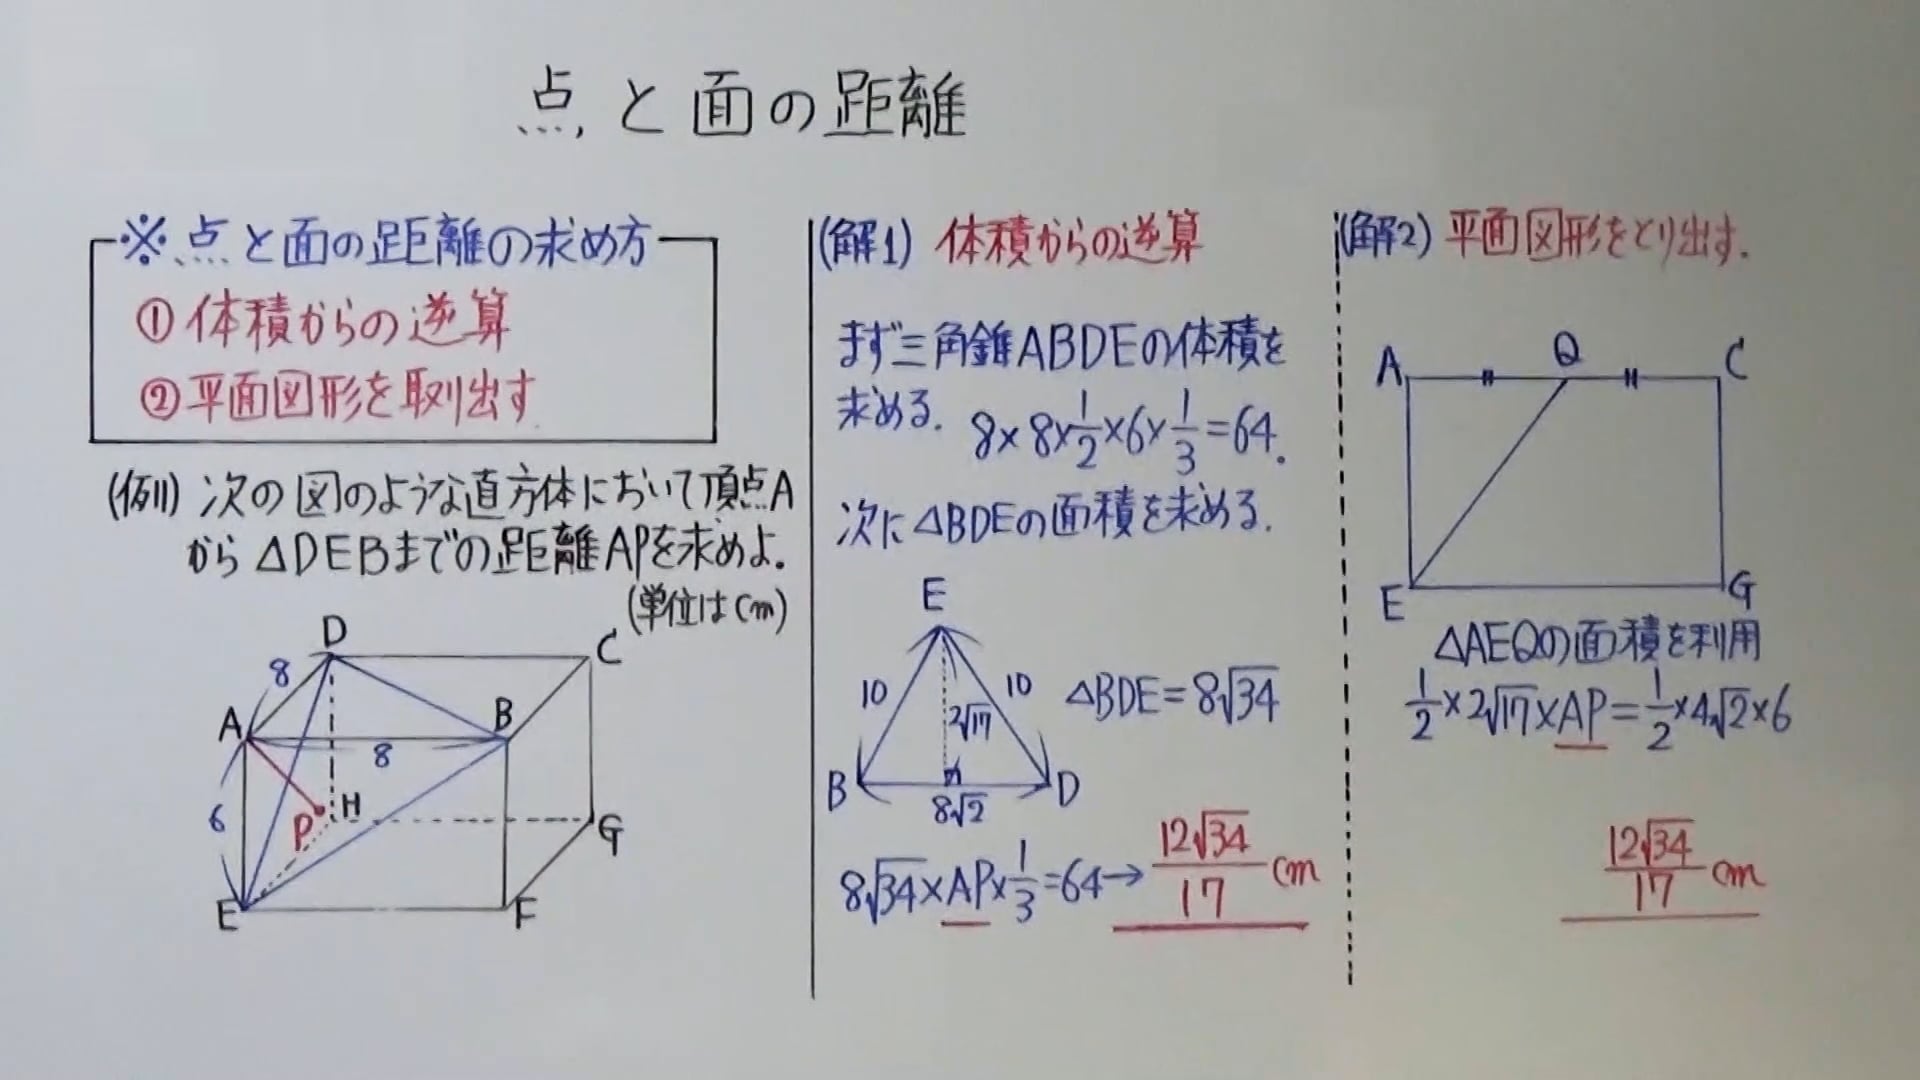 点と面の距離
※点と面の距離の求め方
①体積からの逆算
②平面図形を取り出す
(例) 次の図のような直方体において頂点A
から△DEBまでの距離APを求めよ。
(単位はcm)
D
C
8
A
B
8
6
H
P
G
E
F
(解1) 体積からの逆算
まず三角錐ABDEの体積を
求める. 8×8×1/2×6×1/3=64.
次に△BDEの面積を求める.
E
10
10
2√17
△BDE=8√34
B
D
8√2
8√34×AP×1/3=64→12√34/17 cm
(解2) 平面図形をとり出す.
A
Q
C
E
G
△AEQの面積を利用
1/2×2√17×AP=1/2×4√2×6
12√34/17 cm